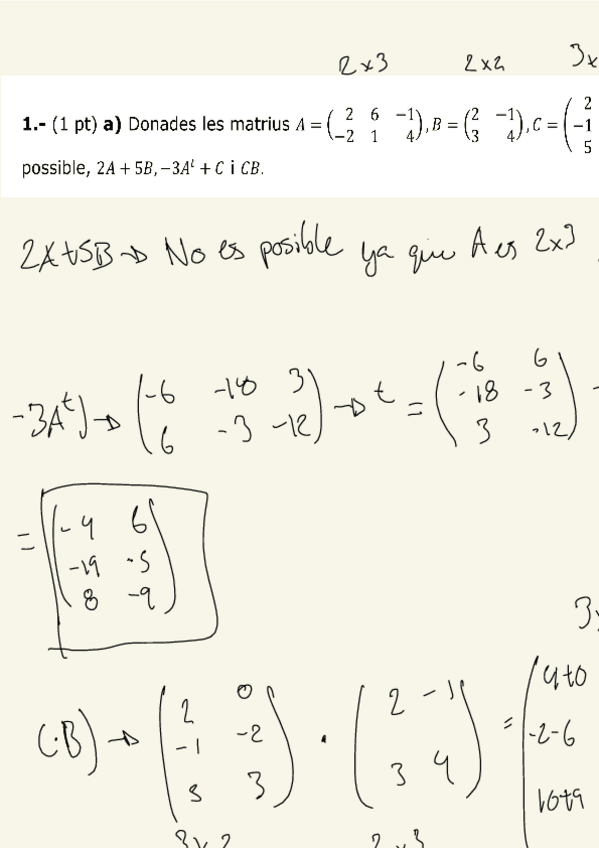 2x3 2x2 3x
1.- (1 pt) a) Donades les matrius A = ( 2 6 -1 ; -2 1 4 ), B = ( 2 -1 ; 3 4 ), C = ( 2 ; -1 ; 5
possible, 2A + 5B, -3Aᵗ + C i CB.
2A+5B → No es posible ya que A es 2x3
-3Aᵗ) → ( -6 -18 3 ; 6 -3 -12 ) → t = ( -6 6 ; -18 -3 ; 3 -12 )
= ( -4 6 ; -19 -5 ; 8 -9 )
3x
C·B) → ( 2 0 ; -1 -2 ; 5 3 ) · ( 2 -1 ; 3 4 ) = ( 4+0 ; -2-6 ; 10+9
3x2 2x3